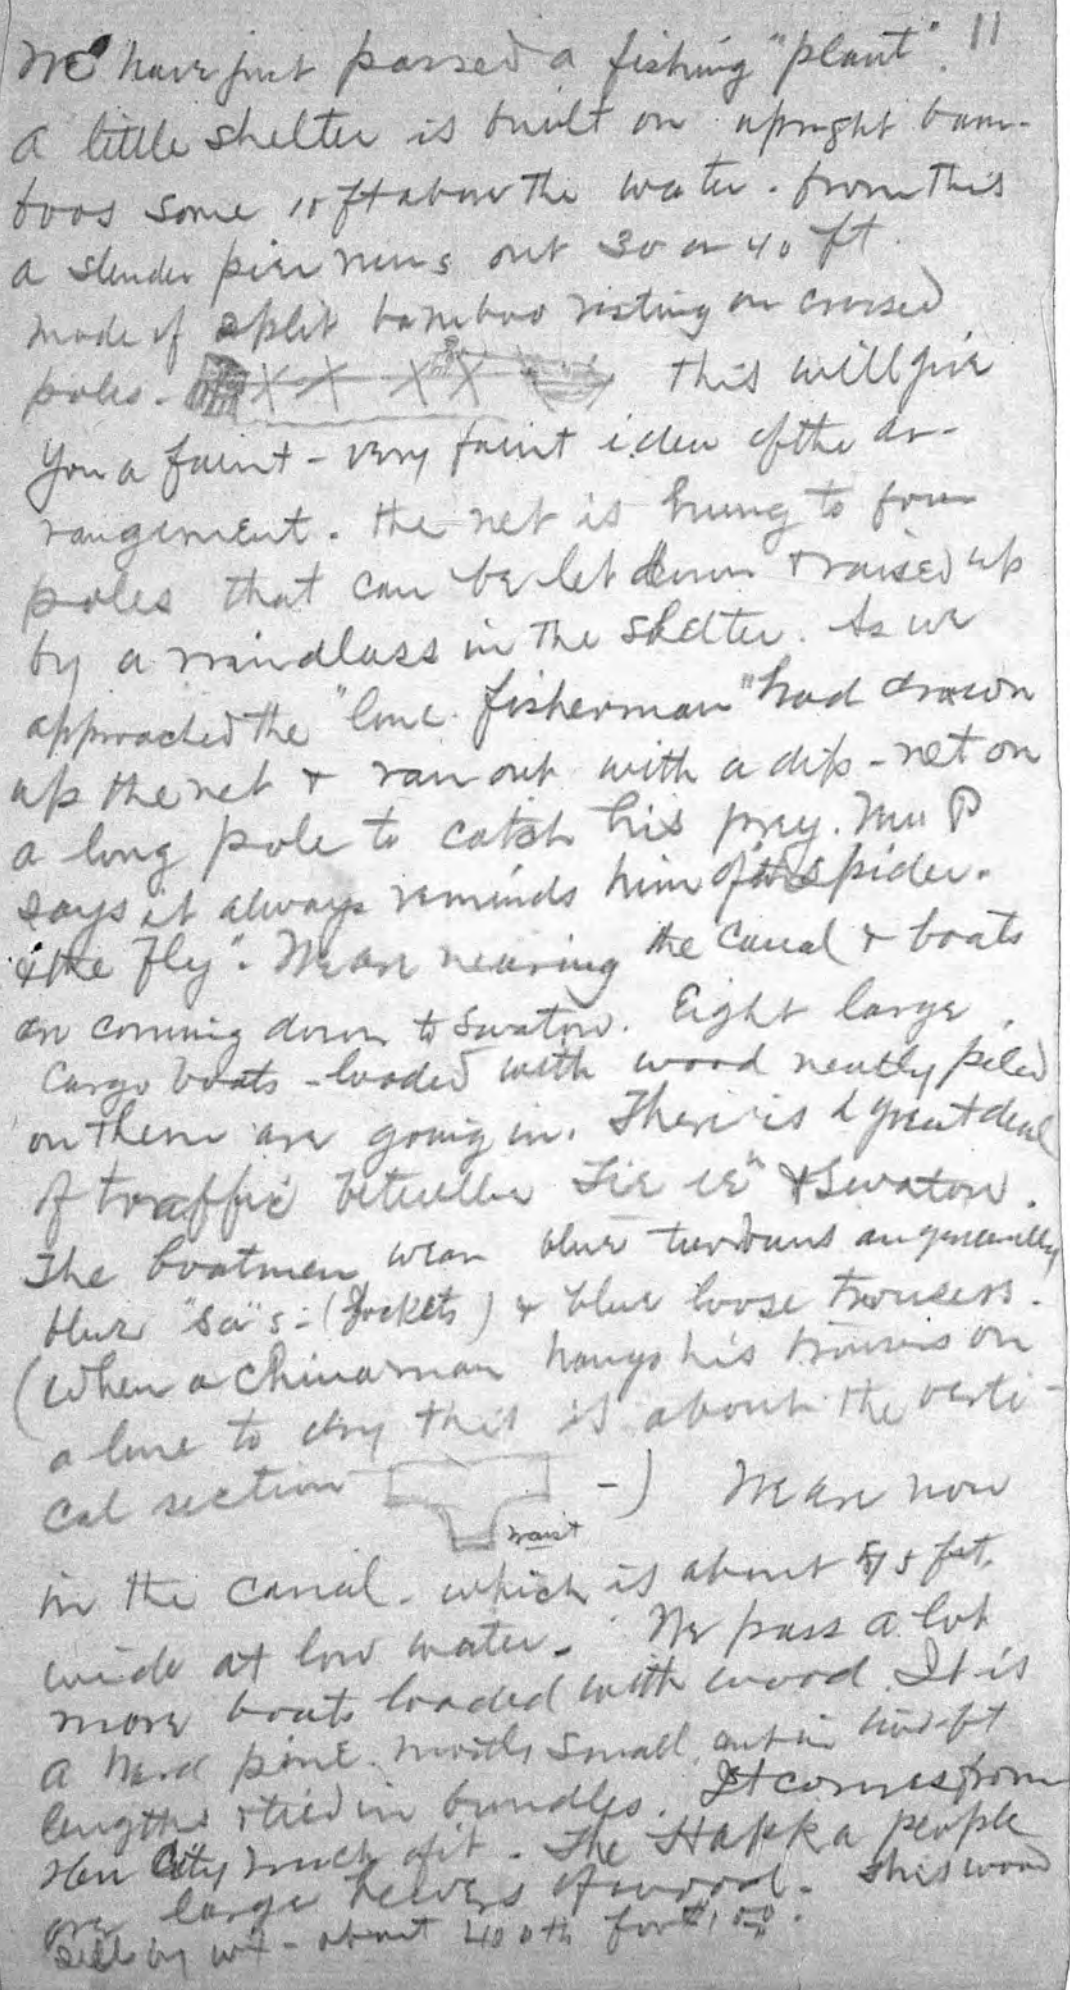 11
We have just passed a fishing "plant".
A little shelter is built on upright bam-
boos some 10 ft above the water. from this
a slender pier runs out 30 or 40 ft.
made of split bamboo resting on crossed
poles. This will give
you a faint - very faint idea of the ar-
rangement. The net is hung to four
poles that can be let down & raised up
by a windlass in the shelter. As we
approached the "lone fisherman" had drawn
up the net & ran out with a dip-net on
a long pole to catch his prey. Mr P
says it always reminds him of the spider
& the Fly". We are nearing the canal & boats
are coming down to Swatow. Eight large
cargo boats - loaded with wood neatly piled
on them are going in. There is a great deal
of traffic between & Swatow.
The boatmen wear blue turbans and generally
blue "Sa"s - (Jackets) & blue loose trousers.
(When a Chinaman hangs his trousers on
a line to dry this is about the verti-
cal section -) We are now
waist
in the canal - which is about 75 feet
wide at low water. We pass a lot
more boats loaded with wood. It is
a hard pine mostly small, cut in two ft
lengths & tied in bundles. It comes from
City much of it. The Hakka people
are large of wood. This wood
sells by wt - about 400 lb for $1.00.